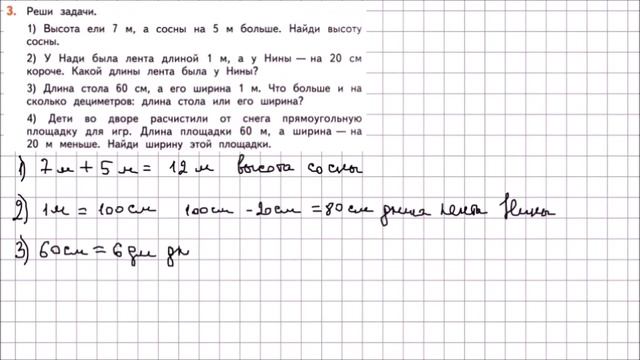 3. Реши задачи.
1) Высота ели 7 м, а сосны на 5 м больше. Найди высоту
сосны.
2) У Нади была лента длиной 1 м, а у Нины — на 20 см
короче. Какой длины лента была у Нины?
3) Длина стола 60 см, а его ширина 1 м. Что больше и на
сколько дециметров: длина стола или его ширина?
4) Дети во дворе расчистили от снега прямоугольную
площадку для игр. Длина площадки 60 м, а ширина — на
20 м меньше. Найди ширину этой площадки.
1) 7 м + 5 м = 12 м высота сосны
2) 1 м = 100 см 100 см - 20 см = 80 см длина лента Нины
3) 60 см = 6 дм дл